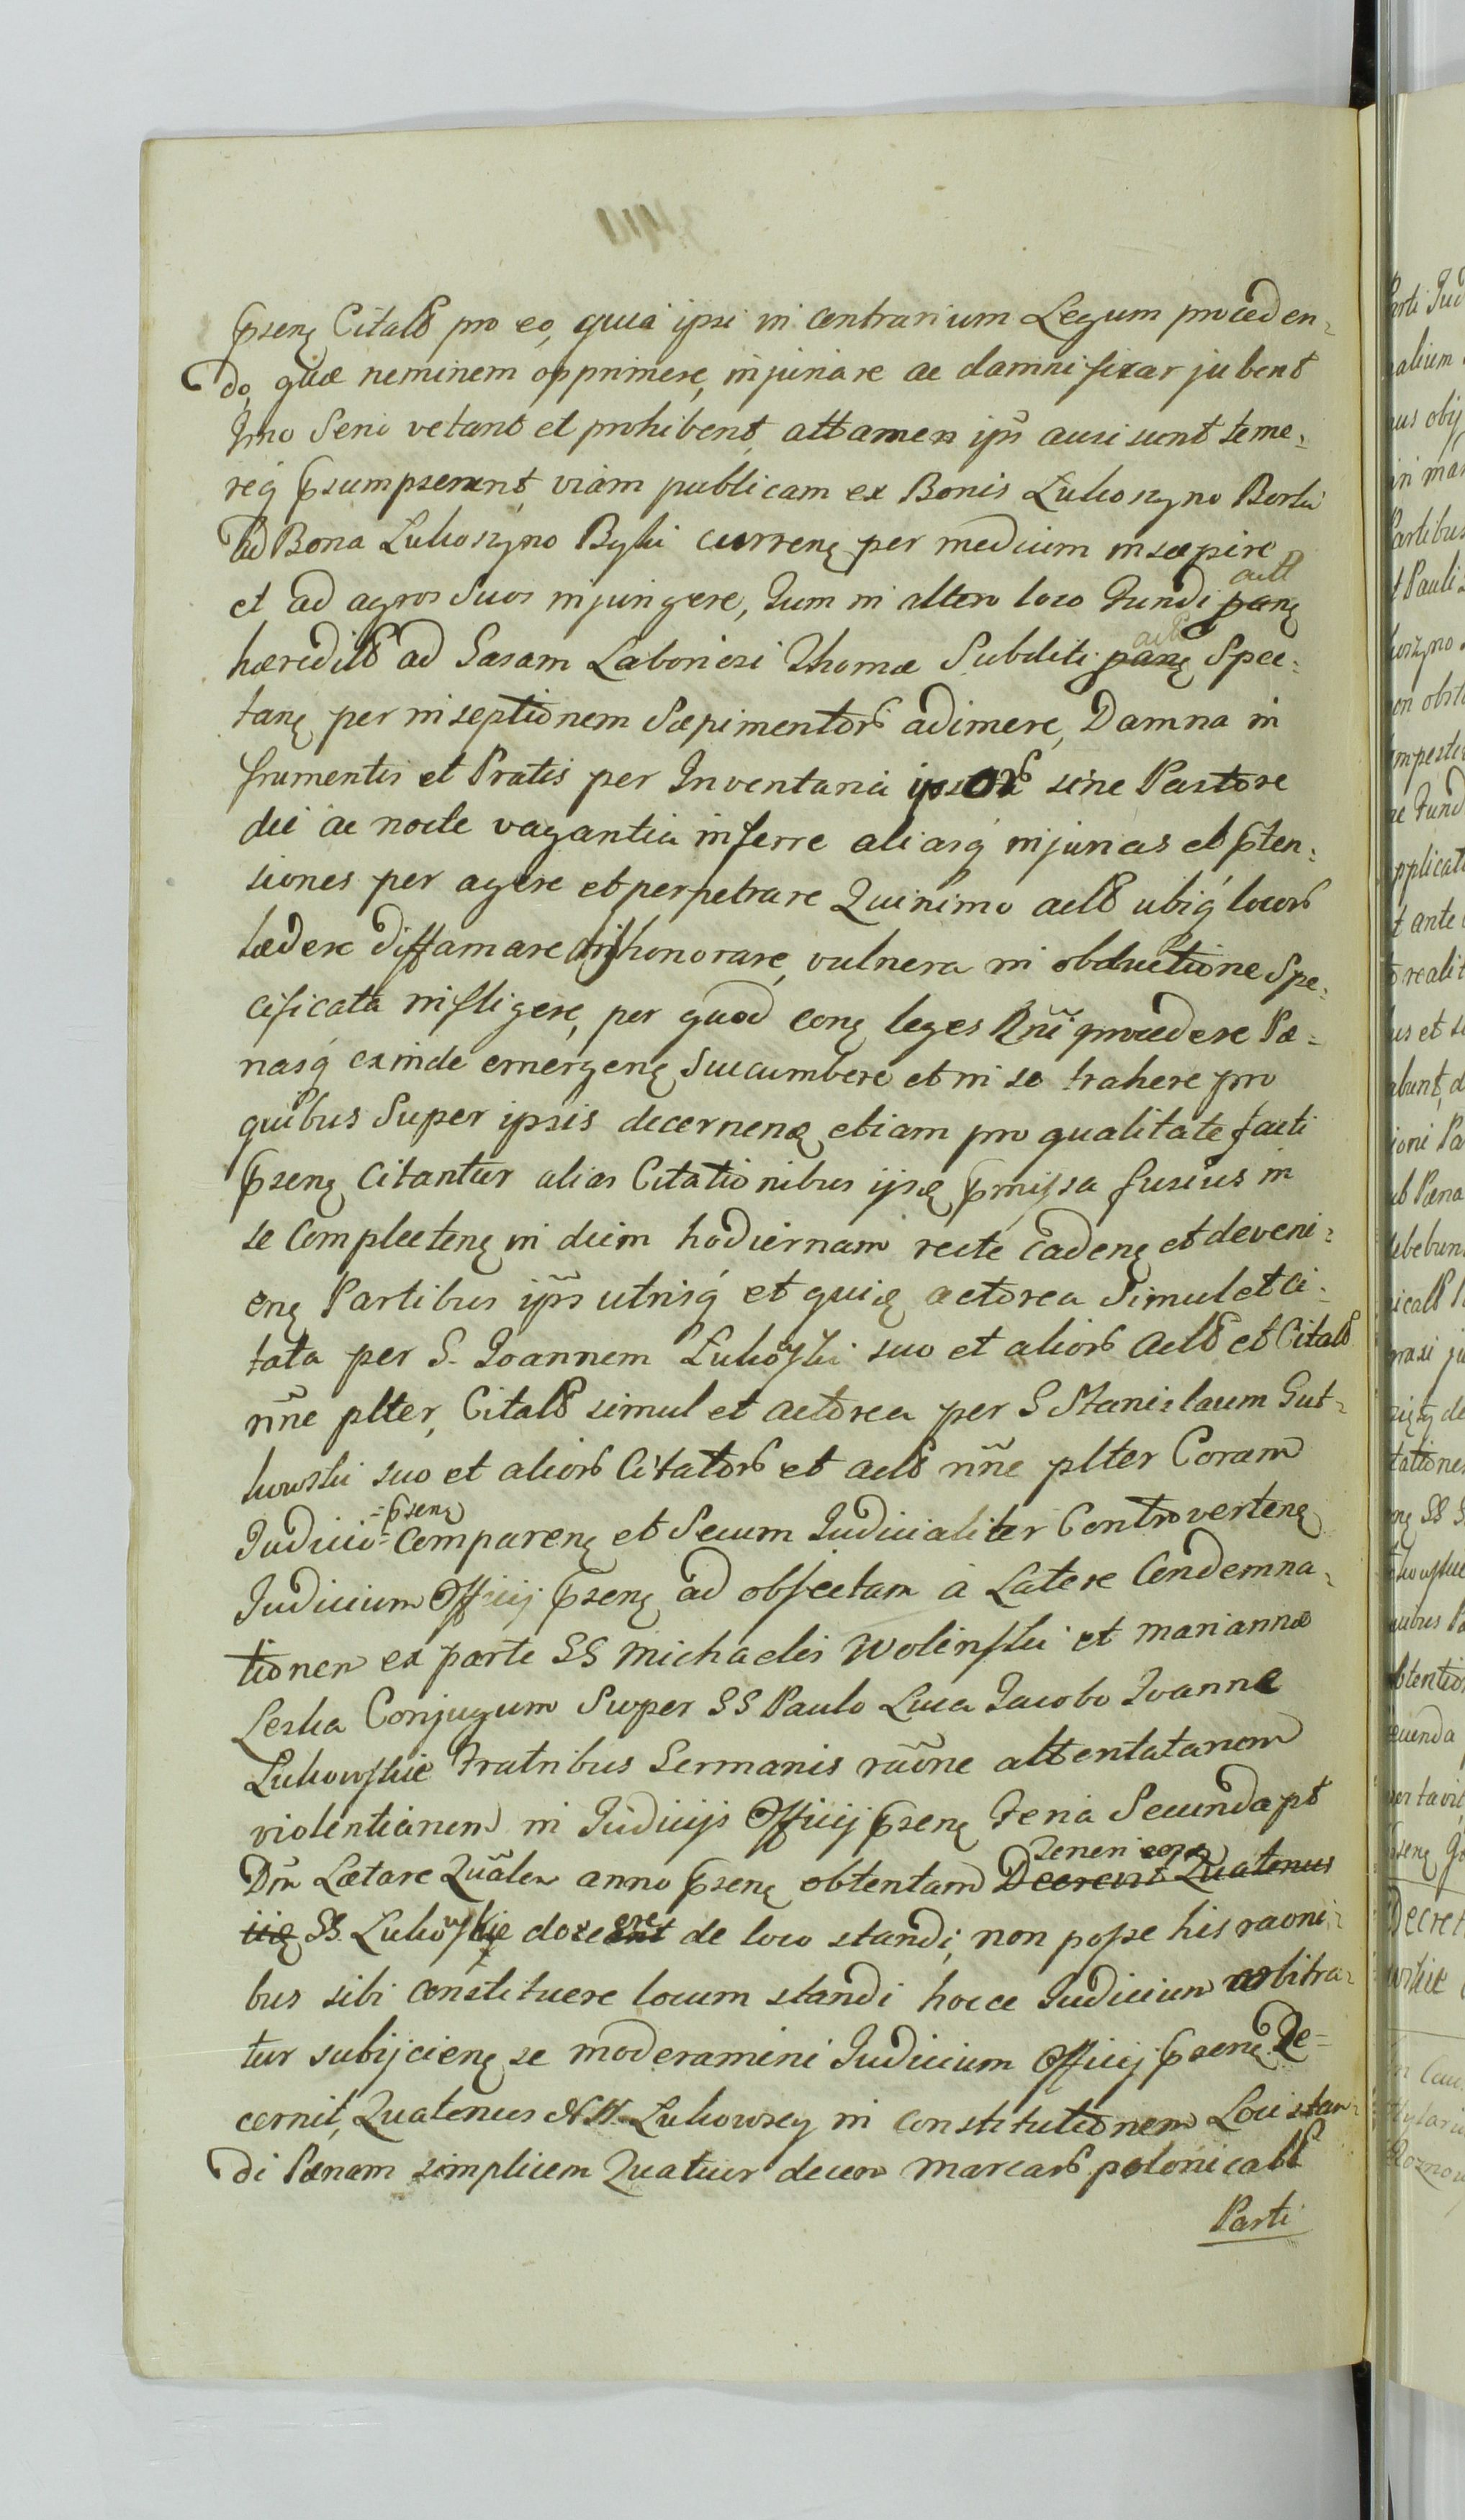 p̄senꝫ Citatꝭ pro eo, quia ipsi in contrarium Legum proceden-
do, quæ neminem opprimere, injuriare ac damnificar jubent
Imo Serio vetant et prohibent, attamen ipsi ausi sunt teme-
req́ p̄sumpserunt viam publicam ex Bonis Lukoszyno Borki
ad Bona Lukoszyno Byki currenꝫ per medium insæpire
et ad agros Suos injungere, Tum in altero loco Fundi actꝭ
hæreditꝭ ad Sasam Laboriosi Thomæ Subditi actꝭ Spec-
tanꝫ per inseptionem Sæpimentorꝭ adimere, Damna in
frumentis et Pratis per Inventaria ipsorꝭ sine Pastore
die ac nocte vagantia inferre aliasq́ injurias et p̄ten-
siones per agere et perpetrare Quinimo actꝭ ubiq́ locorꝭ
lædere diffamare dishonorare, vulnera in obductione Spe-
cificata infligere, per quod conꝫ leges Rñi procedere Pæ-
nasq́ exinde emergenꝫ Succumbere et in se trahere pro
quibus Super ipsis decernenꝫ etiam pro qualitate facti
p̄senꝫ Citantur alias Citationibus ijsꝫ p̄missa fusius in
se complectenꝫ in diem hodiernam recte cadenꝫ et deveni-
enꝫ Partibus ip̃is utrisq́ et quiꝫ actorea Simul et ci-
tata per S. Joannem Lukowski suo et aliorꝭ actꝭ et Citatꝭ
nñe plter, Citatꝭ simul et actorea per S Stanislaum Gut-
kowski suo et aliorꝭ Citatorꝭ et actꝭ nñe plter Coram
Judicio p̄senꝫ Comparenꝫ et Secum Judicialiter Controvertenꝫ
Judicium Officij p̄senꝫ ad objectam a Latere Condemna-
tionem ex parte SS Michaelis Wolinski et Mariannæ
Leska Conjugum Super SS Paulo Luca Jacobo Joanne
Lukowskie Fratribus Germanis rãone attentatarum
violentiarum in Judicijs Officij p̄senꝫ Feria Secunda pt
Dñ Lætare Quãlem anno p̄senꝫ obtentam Teneri Decrevit Quatenus
iiꝫ SS. Lukowskie docere de loco standi, non posse his raoni-
bus sibi constituere locum standi hocce Judicium arbitra-
tur subijcienꝫ se moderamini Judicium Officij p̄senꝫ De-
cernit, Quatenus NN. Lukowscy in constitutionem Loci stan-
di Pænam simplicem Quatuor decem Marcarꝭ polonicalꝭ
Parti